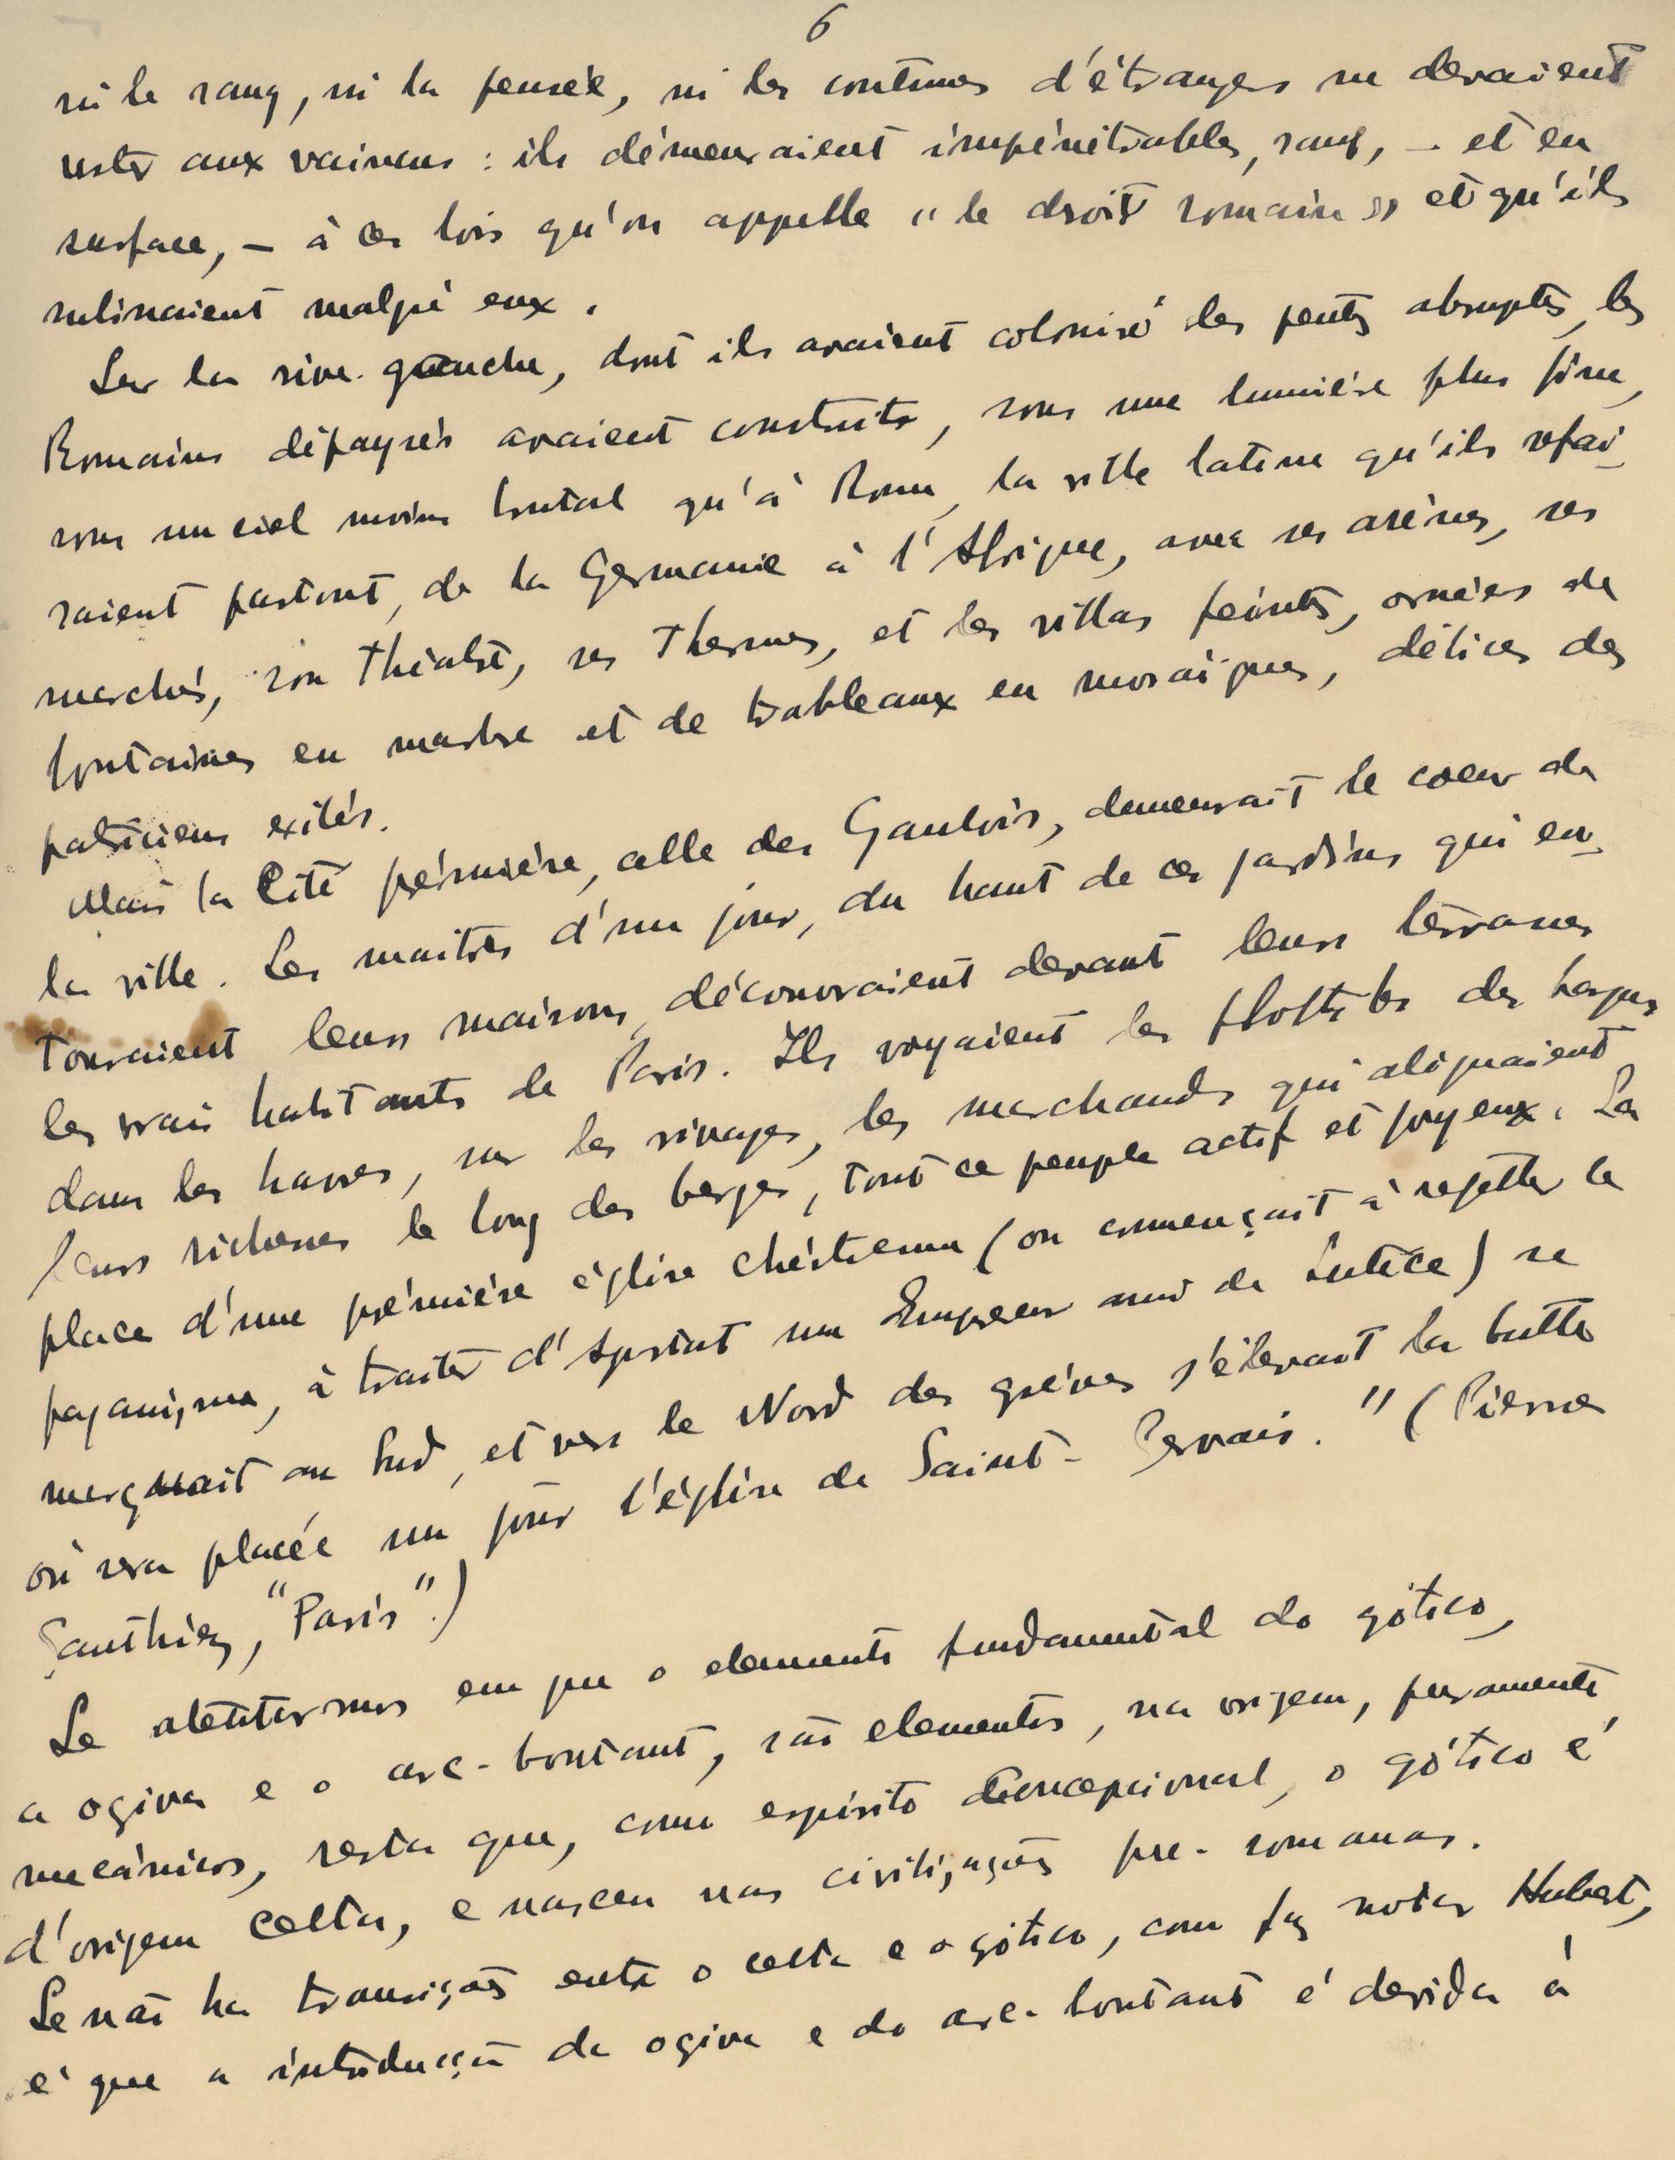 6
ni le sang, ni la pensée, ni les coutumes d'étrangers ne devaient
rester aux vaincus : ils démeuraient impénétrables, sauf, — et en
surface, — à ces lois qu'on appelle "le droit romain" et qu'ils
subissaient malgré eux.
Sur la rive gauche, dont ils avaient colonisé les pentes abruptes, les
Romains dépaysés avaient construits, sous une lumière plus fine,
sous un ciel moins brutal qu'à Rome, la ville latine qu'ils refai-
saient partout, de la Germanie à l'Afrique, avec ses arènes, ses
marchés, son théatre, ses Thermes, et les villas peintes, ornées de
fontaines en marbre et de tableaux en mosaïques, délices des
patriciens exilés.
Mais la Cité prémière, celle des Gaulois, demeurait le coeur de
la ville. Les maitres d'un jour, du haut de ces jardins qui en-
touraient leurs maisons, découvraient devant leurs terrasses
les vrais habitants de Paris. Ils voyaient les flottes des barques
dans les havres, sur les rivages, les marchands qui alignaient
leurs richesses le long des berges, tout ce peuple actif et joyeux. La
place d'une prémière église chrétienne (on commençait à rejetter le
paganisme, à traiter d'Apostat un Empereur ami de Lutéce) se
marquait au Sud, et vers le Nord des grèves s'élevait la butte
où sera placée un jour l'église de Saint-Gervais." (Pierre
Gauthiez, "Paris".)
Se atentarmos em que o elemento fundamental do gótico,
a ogiva e o arc-boutant, são elementos, na origem, puramente
mecánicos, resta que, como espírito concepcional, o gótico é
d'origem celta, e nasceu nas civilizações pre-romanas.
Se não ha transição entre o celta e o gótico, com faz notar Hubert,
é que a introducção da ogiva e do arc-boutant é devida á